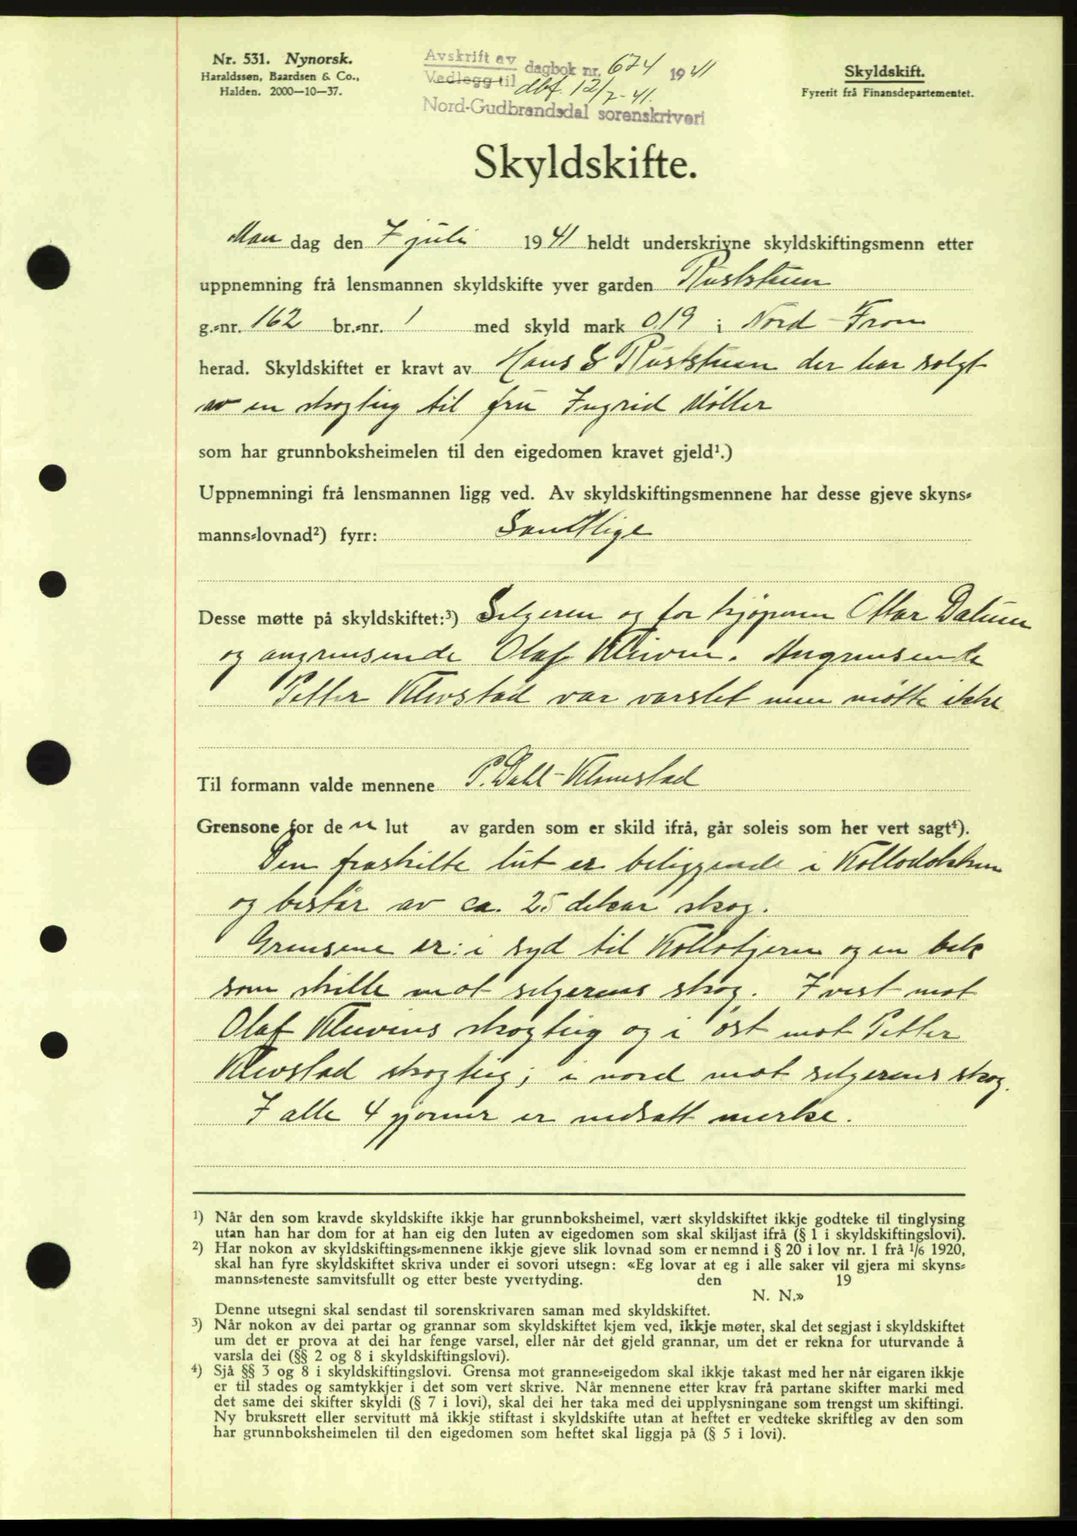 Nr. 531. Nynorsk.
Haraldssen, Baardsen & Co.,
Halden. 2000—10—37.
Avskrift av
Vedlegg til
dagbok nr. 674 1941
dbf. 12/7-41.
Nord-Gudbrandsdal sorenskriveri
Skyldskift.
Fyrerit frå Finansdepartementet.
Skyldskifte.
Man dag den 7 juli 1941 heldt underskrivne skyldskiftingsmenn etter
uppnemning frå lensmannen skyldskifte yver garden Ruststuen
g.-nr. 162 br.-nr. 1 med skyld mark 0,19 i Nord-Fron
herad. Skyldskiftet er kravt av Hans S Ruststuen der har solgt
av en skogteig til fru Ingrid Møller
som har grunnboksheimelen til den eigedomen kravet gjeld¹.)
Uppnemningi frå lensmannen ligg ved. Av skyldskiftingsmennene har desse gjeve skyns-
manns-lovnad²) fyrr: Samtlige
Desse møtte på skyldskiftet:³) Selgeren og for kjøperen Ottar Dalum
og angrensende Olaf Kleiven. Angrensende
Petter Klevstad var varslet men møtte ikke
Til formann valde mennene P. Dahl-Klomstad
Grensone for de n lut av garden som er skild ifrå, går soleis som her vert sagt⁴).
Den fraskilte lut er beliggende i
og består av ca. 25 dekar skog.
Grensene er: i syd til Kollotjern og en bek
som skille mot selgerens skog. I vest mot
Olaf Kleivens skogteig og i øst mot Petter
Klevstad skogteig; i nord mot selgerens skog.
I alle 4 hjørner er nedsatt merke.
¹) Når den som kravde skyldskifte ikkje har grunnboksheimel, vært skyldskiftet ikkje godteke til tinglysing
utan han har dom for at han eig den luten av eigedomen som skal skiljast ifrå (§ 1 i skyldskiftingslovi).
²) Har nokon av skyldskiftings-mennene ikkje gjeve slik lovnad som er nemnd i § 20 i lov nr. 1 frå ¹/₆ 1920,
skal han fyre skyldskiftet skriva under ei sovori utsegn: «Eg lovar at eg i alle saker vil gjera mi skyns-
manns-teneste samvitsfullt og etter beste yvertyding. den 19
N. N.»
Denne utsegni skal sendast til sorenskrivaren saman med skyldskiftet.
³) Når nokon av dei partar og grannar som skyldskiftet kjem ved, ikkje møter, skal det segjast i skyldskiftet
um det er prova at dei har fenge varsel, eller når det gjeld grannar, um det er rekna for uturvande å
varsla dei (§§ 2 og 8 i skyldskiftingslovi).
⁴) Sjå §§ 3 og 8 i skyldskiftingslovi. Grensa mot granne-eigedom skal ikkje takast med her når eigaren ikkje
er til stades og samtykkjer i det som vert skrive. Når mennene etter krav frå partane skifter marki med
det same dei skifter skyldi (§ 7 i lovi), skal dei her taka med dei upplysningane som trengst um skiftingi.
Ny bruksrett eller servitutt må ikkje stiftast i skyldskifte utan at heftet er vedteke skriftleg av den som
har grunnboksheimelen til den eigedomen som heftet skal liggja på (§ 5 i lovi).